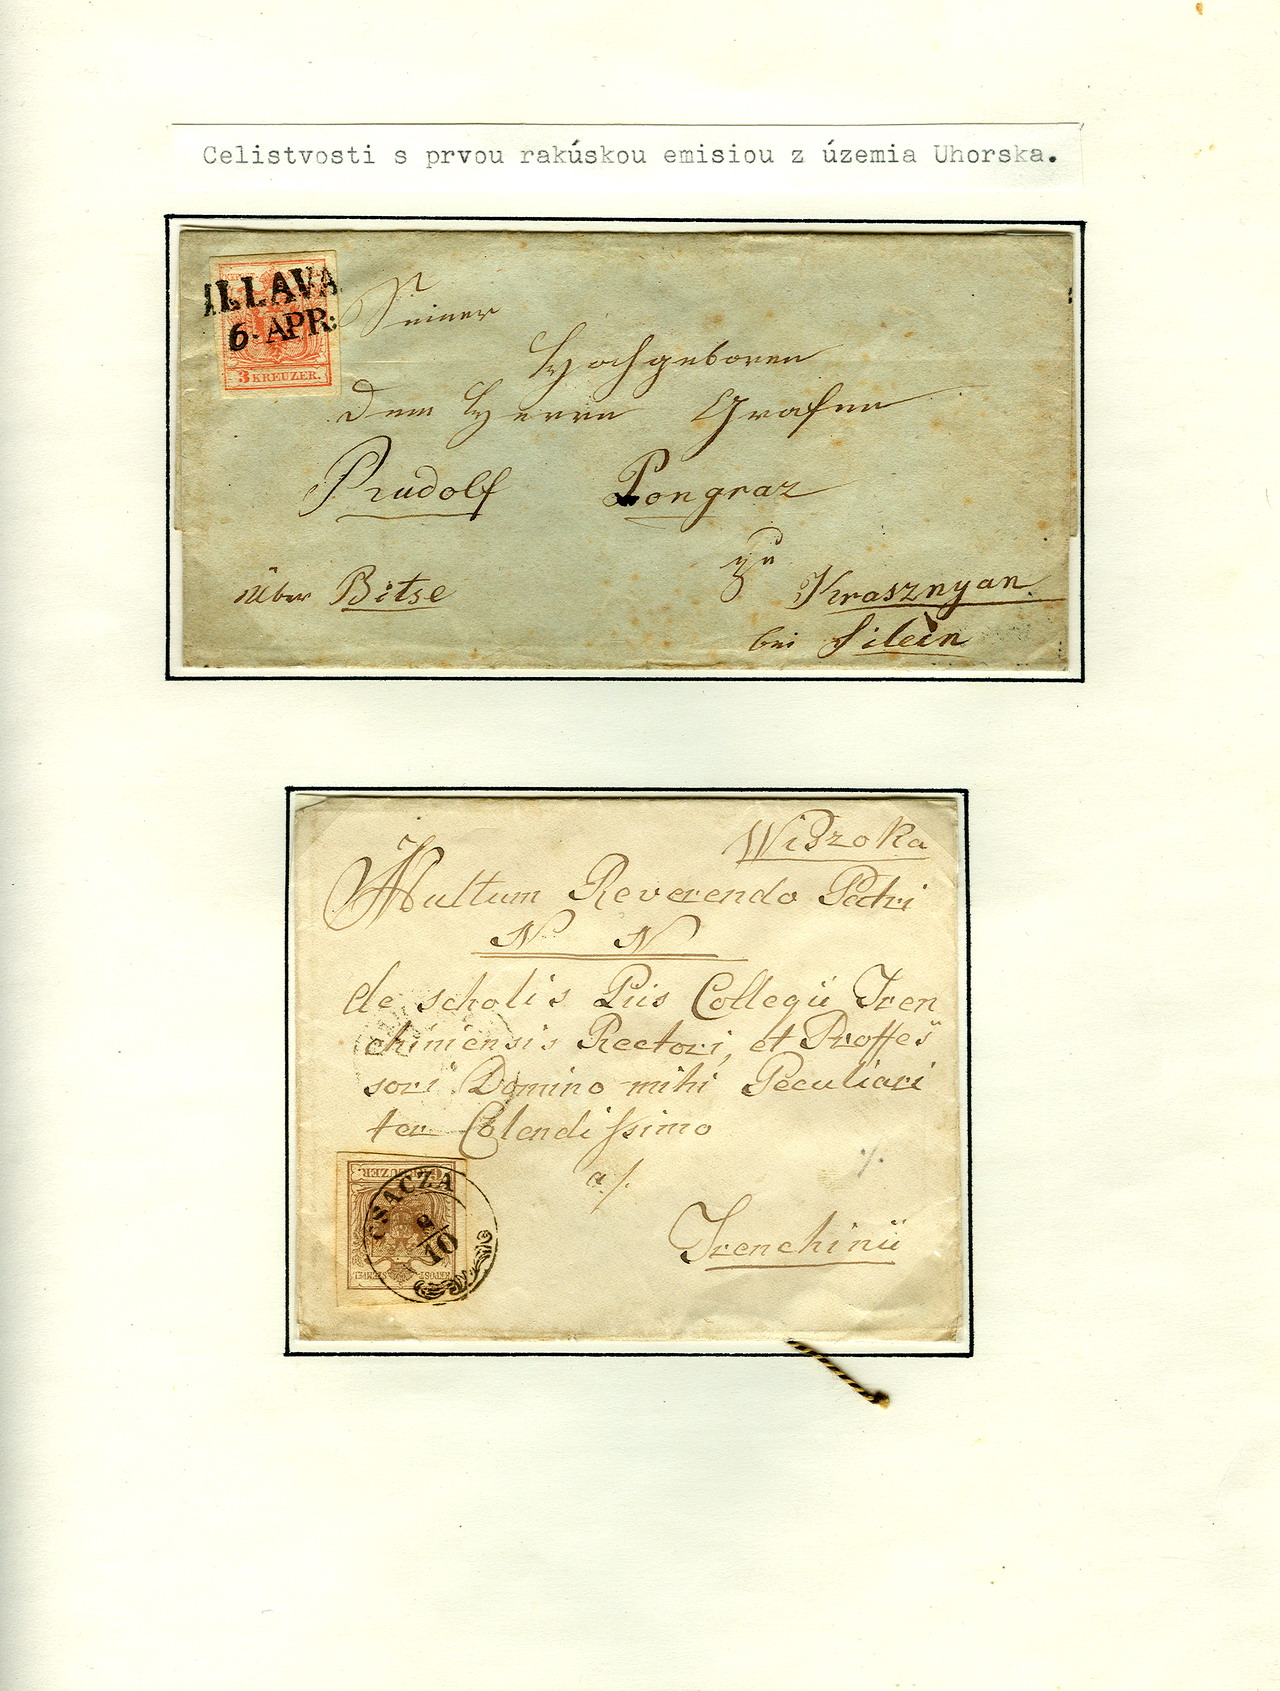 Celistvosti s prvou rakúskou emisiou z územia Uhorska.
ILLAVA
6. APR:
3 KREUZER.
Seiner
Hochgeboren
Dem Herrn Grafen
Rudolf Pongraz
zu
über Bitse
Krasznyan
bei Silein
Wiszoka
Multum Reverendo Patri
N N
de scholis Piis Collegii Tren
chiniensis Rectori, et Proffes
sori Domino mihi Peculiari
ter Colendissimo
a/.
Trenchinii
KREUZER.
CSACZA
2/10